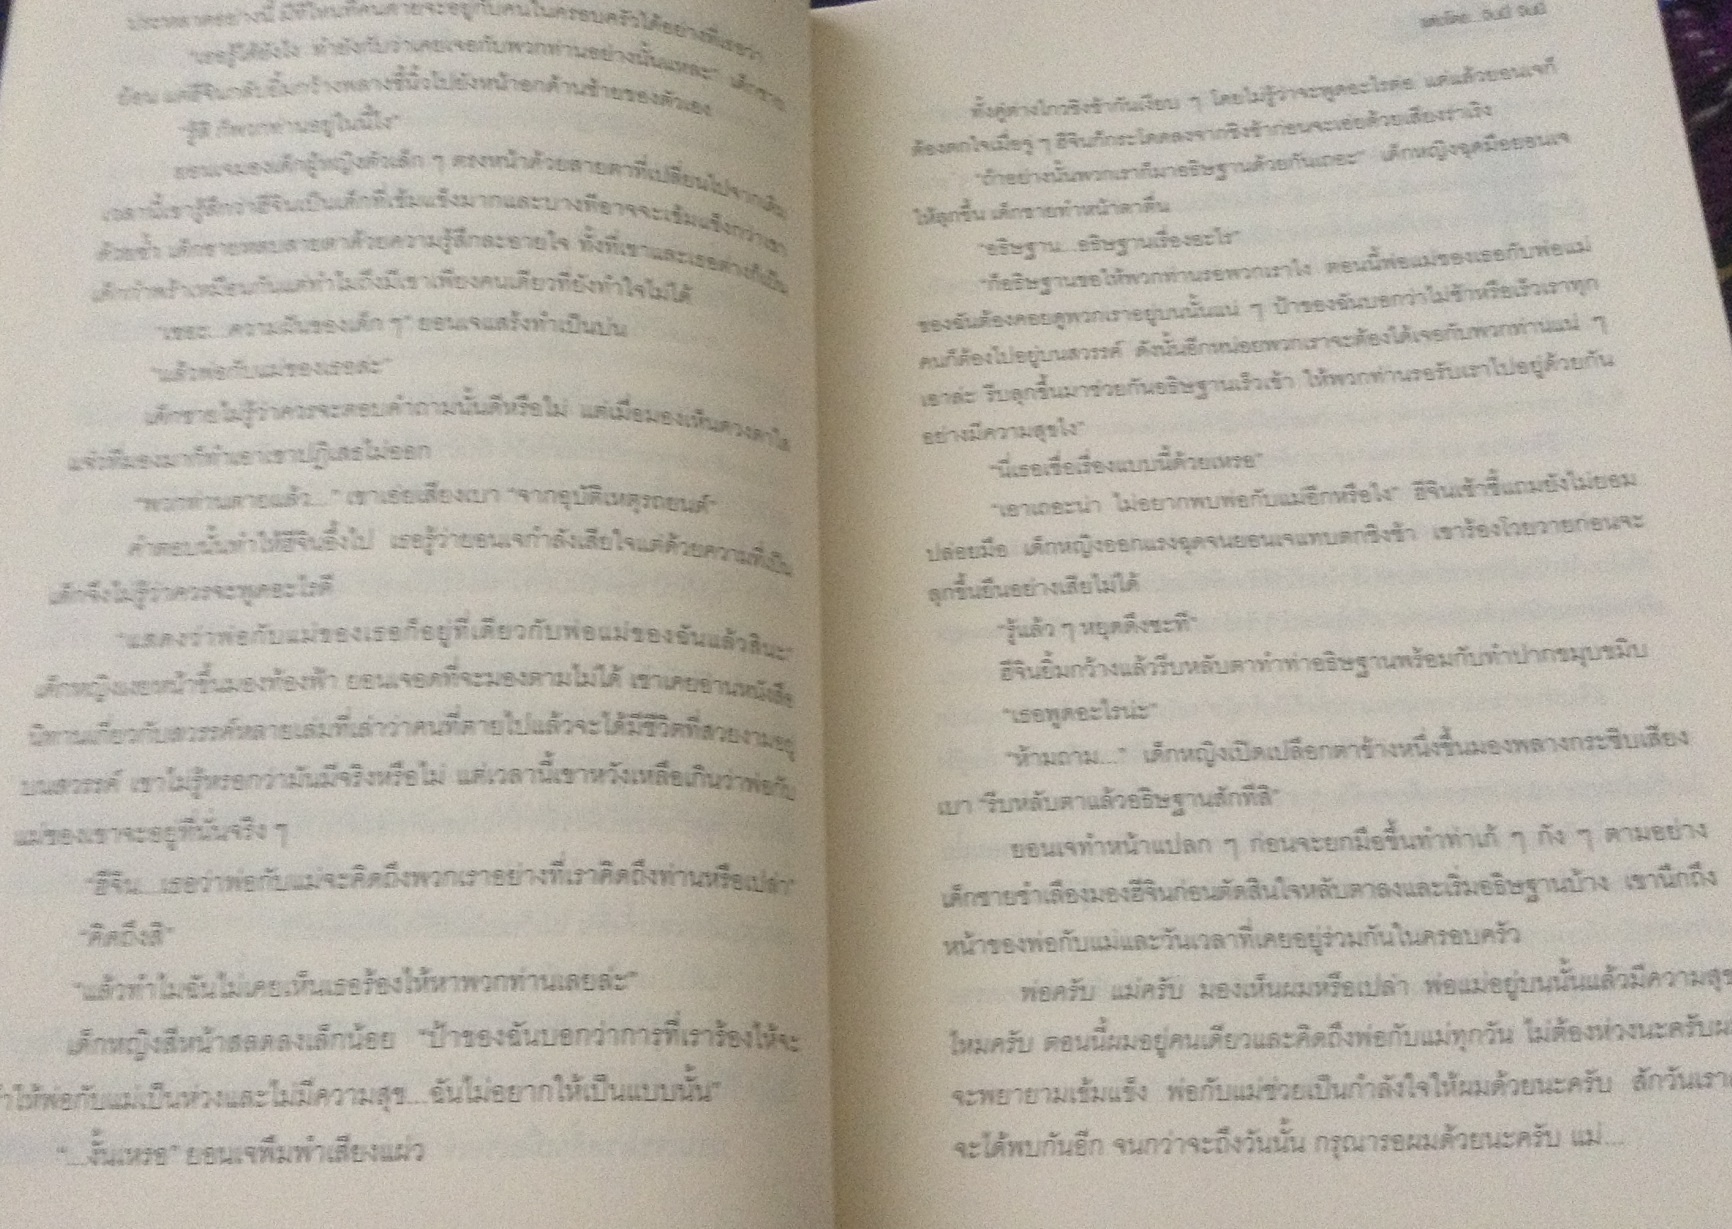 ประหลาดอย่างนี้ มีที่ไหนที่คนตายจะอยู่กับคนในครอบครัวได้อย่างที่เธอว่า
"เธอรู้ได้ยังไง ทำยังกับว่าเคยเจอกับพวกท่านอย่างนั้นแหละ" เด็กชาย
ย้อน แต่ฮีจินกลับยิ้มกว้างพลางชี้นิ้วไปยังหน้าอกด้านซ้ายของตัวเอง
"รู้สิ ก็พวกท่านอยู่ในนี้ไง"
ยอนเจมองเด็กผู้หญิงตัวเล็ก ๆ ตรงหน้าด้วยสายตาที่เปลี่ยนไปจากเดิม
เวลานี้เขารู้สึกว่าฮีจินเป็นเด็กที่เข้มแข็งมากและบางทีอาจจะเข้มแข็งกว่าเขา
ด้วยซ้ำ เด็กชายหลบสายตาด้วยความรู้สึกละอายใจ ทั้งที่เขาและเธอต่างก็เป็น
เด็กกำพร้าเหมือนกันแต่ทำไมถึงมีเขาเพียงคนเดียวที่ยังทำใจไม่ได้
"เชอะ...ความฝันของเด็ก ๆ" ยอนเจแสร้งทำเป็นบ่น
"แล้วพ่อกับแม่ของเธอล่ะ"
เด็กชายไม่รู้ว่าควรจะตอบคำถามนั้นดีหรือไม่ แต่เมื่อมองเห็นดวงตาใส
แจ๋วที่มองมาก็ทำเอาเขาปฏิเสธไม่ออก
"พวกท่านตายแล้ว..." เขาเอ่ยเสียงเบา "จากอุบัติเหตุรถยนต์"
คำตอบนั้นทำให้ฮีจินอึ้งไป เธอรู้ว่ายอนเจกำลังเสียใจแต่ด้วยความที่เป็น
เด็กจึงไม่รู้ว่าควรจะพูดอะไรดี
"แสดงว่าพ่อกับแม่ของเธอก็อยู่ที่เดียวกับพ่อแม่ของฉันแล้วสินะ"
เด็กหญิงเงยหน้าขึ้นมองท้องฟ้า ยอนเจอดที่จะมองตามไม่ได้ เขาเคยอ่านหนังสือ
นิทานเกี่ยวกับสวรรค์หลายเล่มที่เล่าว่าคนที่ตายไปแล้วจะได้มีชีวิตที่สวยงามอยู่
บนสวรรค์ เขาไม่รู้หรอกว่ามันมีจริงหรือไม่ แต่เวลานี้เขาหวังเหลือเกินว่าพ่อกับ
แม่ของเขาจะอยู่ที่นั่นจริง ๆ
"ฮีจิน...เธอว่าพ่อกับแม่จะคิดถึงพวกเราอย่างที่เราคิดถึงท่านหรือเปล่า"
"คิดถึงสิ"
"แล้วทำไมฉันไม่เคยเห็นเธอร้องไห้หาพวกท่านเลยล่ะ"
เด็กหญิงสีหน้าสลดลงเล็กน้อย "ป้าของฉันบอกว่าการที่เราร้องไห้จะ
ทำให้พ่อกับแม่เป็นห่วงและไม่มีความสุข...ฉันไม่อยากให้เป็นแบบนั้น"
"...งั้นเหรอ" ยอนเจพึมพำเสียงแผ่ว
ทั้งคู่ต่างไกวชิงช้ากันเงียบ ๆ โดยไม่รู้ว่าจะพูดอะไรต่อ แต่แล้วยอนเจก็
ต้องตกใจเมื่อจู่ ๆ ฮีจินก็กระโดดลงจากชิงช้าก่อนจะเอ่ยด้วยเสียงร่าเริง
"ถ้าอย่างนั้นพวกเราก็มาอธิษฐานด้วยกันเถอะ" เด็กหญิงฉุดมือยอนเจ
ให้ลุกขึ้น เด็กชายทำหน้าตาตื่น
"อธิษฐาน...อธิษฐานเรื่องอะไร"
"ก็อธิษฐานขอให้พวกท่านรอพวกเราไง ตอนนี้พ่อแม่ของเธอกับพ่อแม่
ของฉันต้องคอยดูพวกเราอยู่บนนั้นแน่ ๆ ป้าของฉันบอกว่าไม่ช้าหรือเร็วเราทุก
คนก็ต้องไปอยู่บนสวรรค์ ดังนั้นอีกหน่อยพวกเราจะต้องได้เจอกับพวกท่านแน่ ๆ
เอาล่ะ รีบลุกขึ้นมาช่วยกันอธิษฐานเร็วเข้า ให้พวกท่านรอรับเราไปอยู่ด้วยกัน
อย่างมีความสุขไง"
"นี่เธอเชื่อเรื่องแบบนี้ด้วยเหรอ"
"เอาเถอะน่า ไม่อยากพบพ่อกับแม่อีกหรือไง" ฮีจินเซ้าซี้แถมยังไม่ยอม
ปล่อยมือ เด็กหญิงออกแรงฉุดจนยอนเจแทบตกชิงช้า เขาร้องโวยวายก่อนจะ
ลุกขึ้นยืนอย่างเสียไม่ได้
"รู้แล้ว ๆ หยุดดึงซะที"
ฮีจินยิ้มกว้างแล้วรีบหลับตาทำท่าอธิษฐานพร้อมกับทำปากขมุบขมิบ
"เธอพูดอะไรน่ะ"
"ห้ามถาม..." เด็กหญิงเปิดเปลือกตาข้างหนึ่งขึ้นมองพลางกระซิบเสียง
เบา "รีบหลับตาแล้วอธิษฐานสักทีสิ"
ยอนเจทำหน้าแปลก ๆ ก่อนจะยกมือขึ้นทำท่าเก้ ๆ กัง ๆ ตามอย่าง
เด็กชายชำเลืองมองฮีจินก่อนตัดสินใจหลับตาลงและเริ่มอธิษฐานบ้าง เขานึกถึง
หน้าของพ่อกับแม่และวันเวลาที่เคยอยู่ร่วมกันในครอบครัว
พ่อครับ แม่ครับ มองเห็นผมหรือเปล่า พ่อแม่อยู่บนนั้นแล้วมีความสุข
ไหมครับ ตอนนี้ผมอยู่คนเดียวและคิดถึงพ่อกับแม่ทุกวัน ไม่ต้องห่วงนะครับ
จะพยายามเข้มแข็ง พ่อกับแม่ช่วยเป็นกำลังใจให้ผมด้วยนะครับ สักวันเรา
จะได้พบกันอีก จนกว่าจะถึงวันนั้น กรุณารอผมด้วยนะครับ แม่...